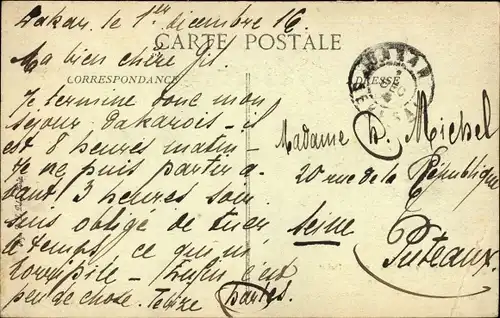 Dakar le 1er décembre 16
CARTE POSTALE
Ma bien chère
CORRESPONDANCE
ADRESSE
DAKAR
Je termine donc mon
séjour dakarois – il
est 8 heures matin –
Je ne puis partir a-
vant 3 heures soir
suis obligé de tuer
le temps, ce qui m'
horripile – Enfin c'est
peu de chose.
Madame D. Michel
20 rue de la République
Puteaux
Seine